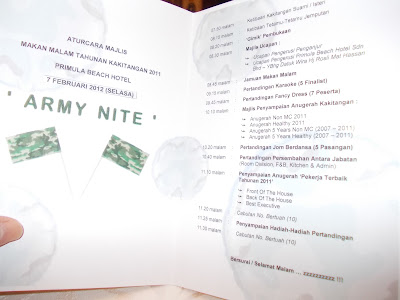 ATURCARA MAJLIS
MAKAN MALAM TAHUNAN KAKITANGAN 2011
PRIMULA BEACH HOTEL
7 FEBRUARI 2012 (SELASA)
' ARMY NITE '
malam
Ketibaan Kakitangan Suami / Isteri
malam
Ketibaan Tetamu-Tetamu Jemputan
malam
Gimik Pembukaan
malam
Majlis Ucapan :
Ucapan Pengerusi Penganjur
Ucapan Pengerusi Primula Beach Hotel Sdn
Bhd – YBhg Datuk Wira
08.45 malam
Jamuan Makan Malam
malam
Pertandingan Karaoke (5 Finalist)
malam
Pertandingan Fancy Dress (7 Peserta)
malam
Majlis Penyampaian Anugerah Kakitangan :
Anugerah Non MC 2011
Anugerah Healthy 2011
Anugerah 5 Years Non MC (2007 – 2011)
Anugerah 5 Years Healthy (2007 – 2011)
malam
Pertandingan Jom Berdansa (5 Pasangan)
10.40 malam
Pertandingan Persembahan Antara Jabatan
(Room Division, F&B, Kitchen & Admin)
malam
Penyampaian Anugerah 'Pekerja Terbaik
Tahunan 2011'
Front Of The House
Back Of The House
Best Executive
malam
Cabutan No. Bertuah (10)
malam
Penyampaian Hadiah-Hadiah Pertandingan
11.35 malam
Cabutan No. Bertuah (10)
Bersurai / Selamat Malam